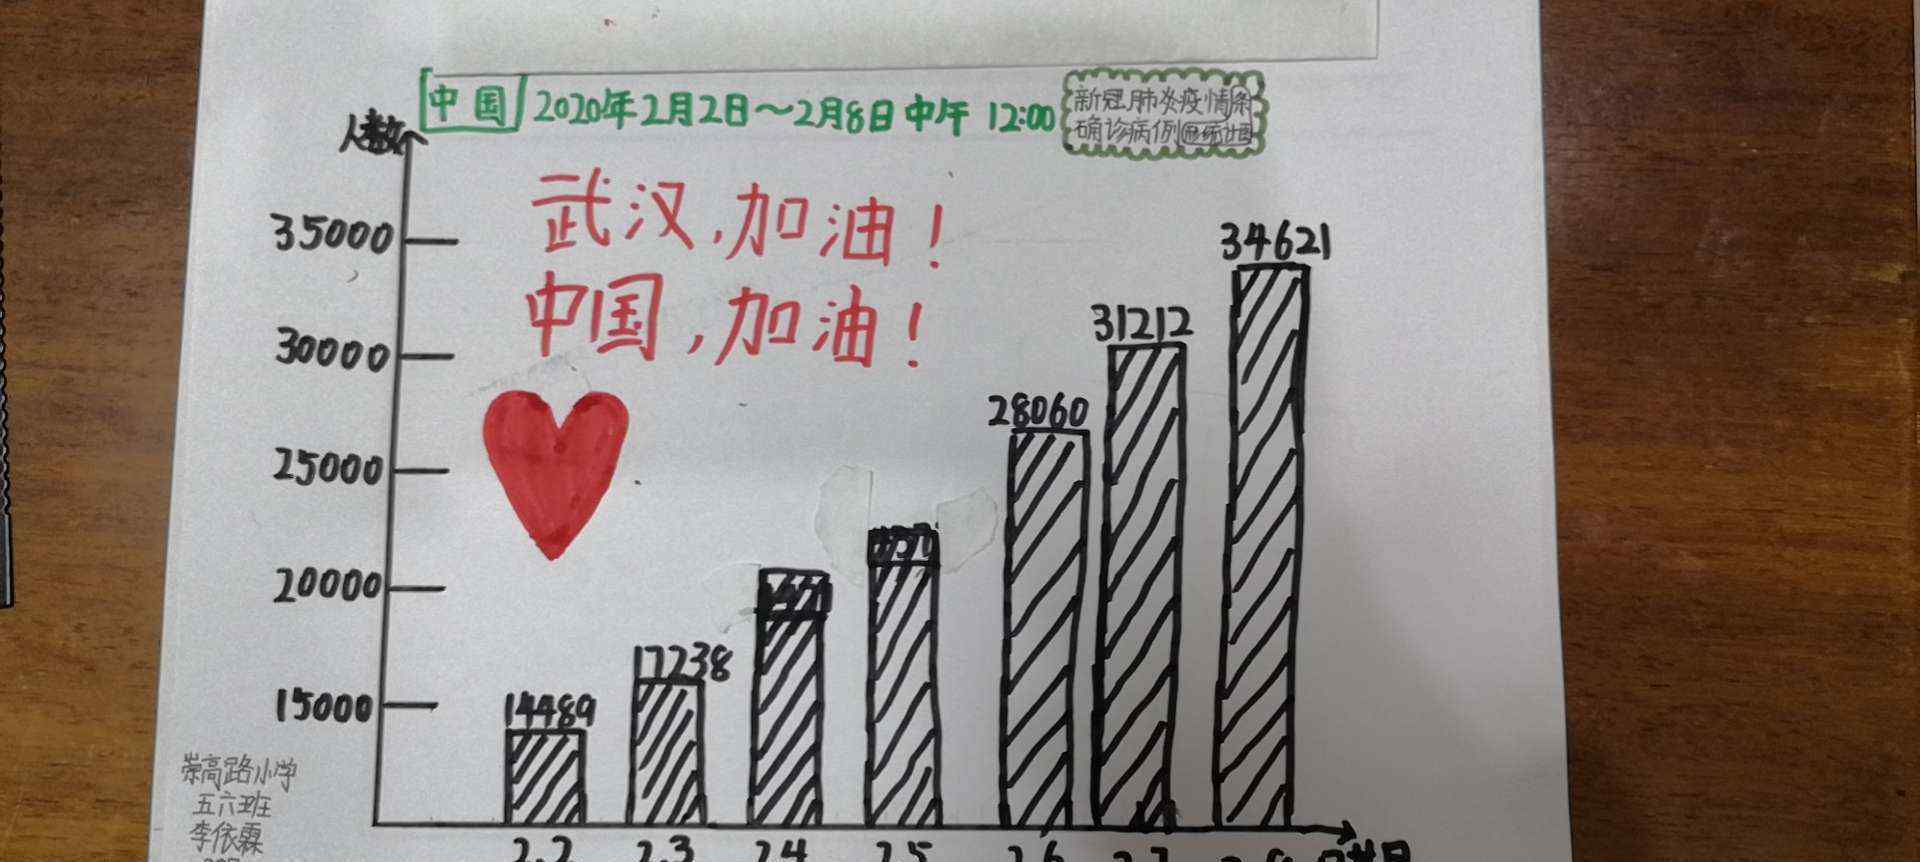 中国 2020年2月2日～2月8日中午 12:00
新冠肺炎疫情
确诊病例
人数
武汉,加油!
中国,加油!
35000
30000
25000
20000
15000
14489
17238
28060
31212
34621
2.2
2.3
2.4
2.5
2.6
2.7
2.8
崇高路小学
五六班
李依霖